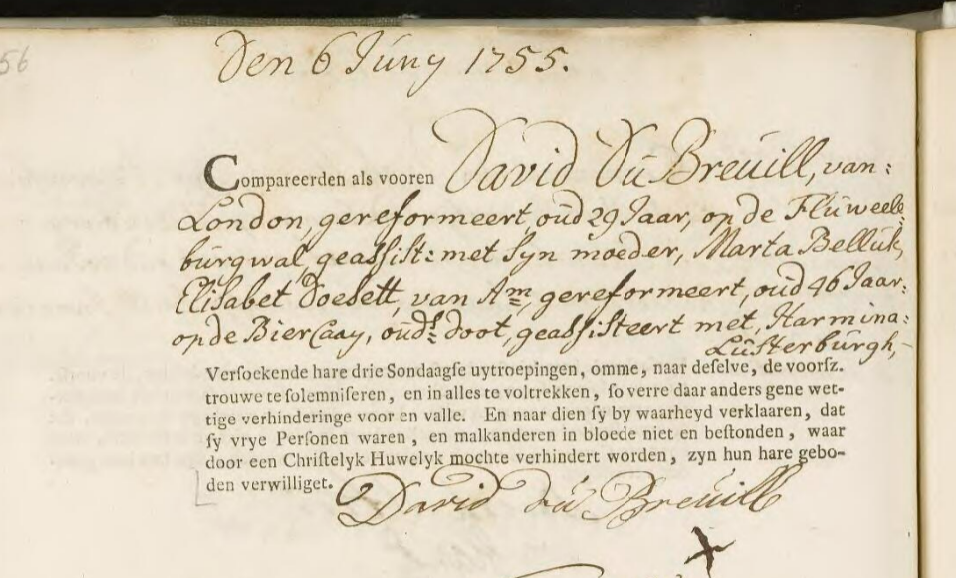 56
Den 6 Júny 1755.
Compareerden als vooren David Dú Breúill, van:
London, gereformeert, oúd 29 Jaar, op de Flúweele
búrgwal, geassist: met syn moeder, Marta Bellúk,
Elisabet Doesett, van Am, gereformeert, oúd 46 Jaar:
op de Bier Caay, oúds doot, geassisteert met, Harmina:
Lústerbúrgh,
Versoekende hare drie Sondaagse uytroepingen, omme, naar deselve, de voorsz.
trouwe te solemniseren, en in alles te voltrekken, so verre daar anders gene wet-
tige verhinderinge voor en valle. En naar dien sy by waarheyd verklaaren, dat
sy vrye Personen waren, en malkanderen in bloede niet en bestonden, waar
door een Christelyk Huwelyk mochte verhindert worden, zyn hun hare gebo-
den verwilliget.
David dú Breúill
X